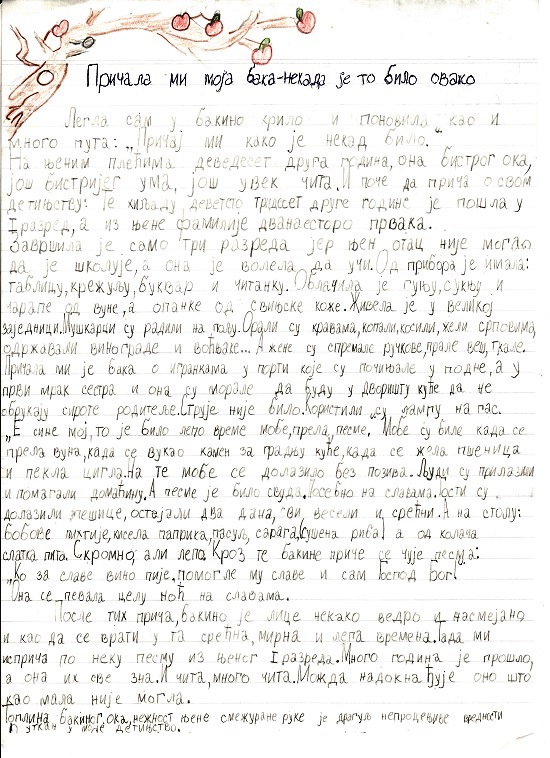 Причала ми моја бака-некада је то било овако
Легла сам у бакино крило и поновила као и
много пута: „Причај ми како је некад било."
На њеним плећима деведесет друга година, она бистрог ока,
још бистријег ума, још увек чита. И поче да прича о свом
детињству: Те хиљаду деветсто тридесет друге године је пошла у
I разред, а из њене фамилије дванаесторо првака.
Завршила је само три разреда јер њен отац није могао
да је школује, а она је волела да учи. Од прибора је имала:
таблицу, крежуљу, буквар и читанку. Облачила је гуњу, сукњу и
чарапе од вуне, а опанке од свињске коже. Живела је у великој
заједници. Мушкарци су радили на пољу. Орали су кравама, копали, косили, жели срповима,
одржавали винограде и воћњаке... А жене су спремале ручкове, прале веш, ткале.
Причала ми је бака о игранкама у порти које су почињале у подне, а у
први мрак сестра и она су морале да буду у дворишту куће да не
обрукају сироте родитеље. Струје није било. Користили су лампу на гас.
„Е сине мој, то је било лепо време мобе, прела, песме." Мобе су биле када се
прела вуна, када се вукао камен за градњу куће, када се жела пшеница
и пекла цигла. На те мобе се долазило без позива. Људи су прилазили
и помагали домаћину. А песме је било свуда. Посебно на славама. Гости су
долазили пешице, остајали два дана, сви весели и срећни. А на столу:
бобове пихтије, кисела паприка, пасуљ, сарага (сушена риба) а од колача
слатка пита. Скромно, али лепо. Кроз те бакине приче се чује песма:
„Ко за славе вино пије. помогле му славе и сам Господ Бог!
Она се певала целу ноћ на славама.
После тих прича, бакино је лице некако ведро и насмејано
и као да се врати у та срећна, мирна и лепа времена. Тада ми
исприча по неку песму из њеног I разреда. Много година је прошло,
а она их све зна. И чита, много чита. Можда надокнађује оно што
као мала није могла.
Топлина бакиног ока, нежност њене смежуране руке је драгуљ непроцењиве вредности
уткан у моје детињство.